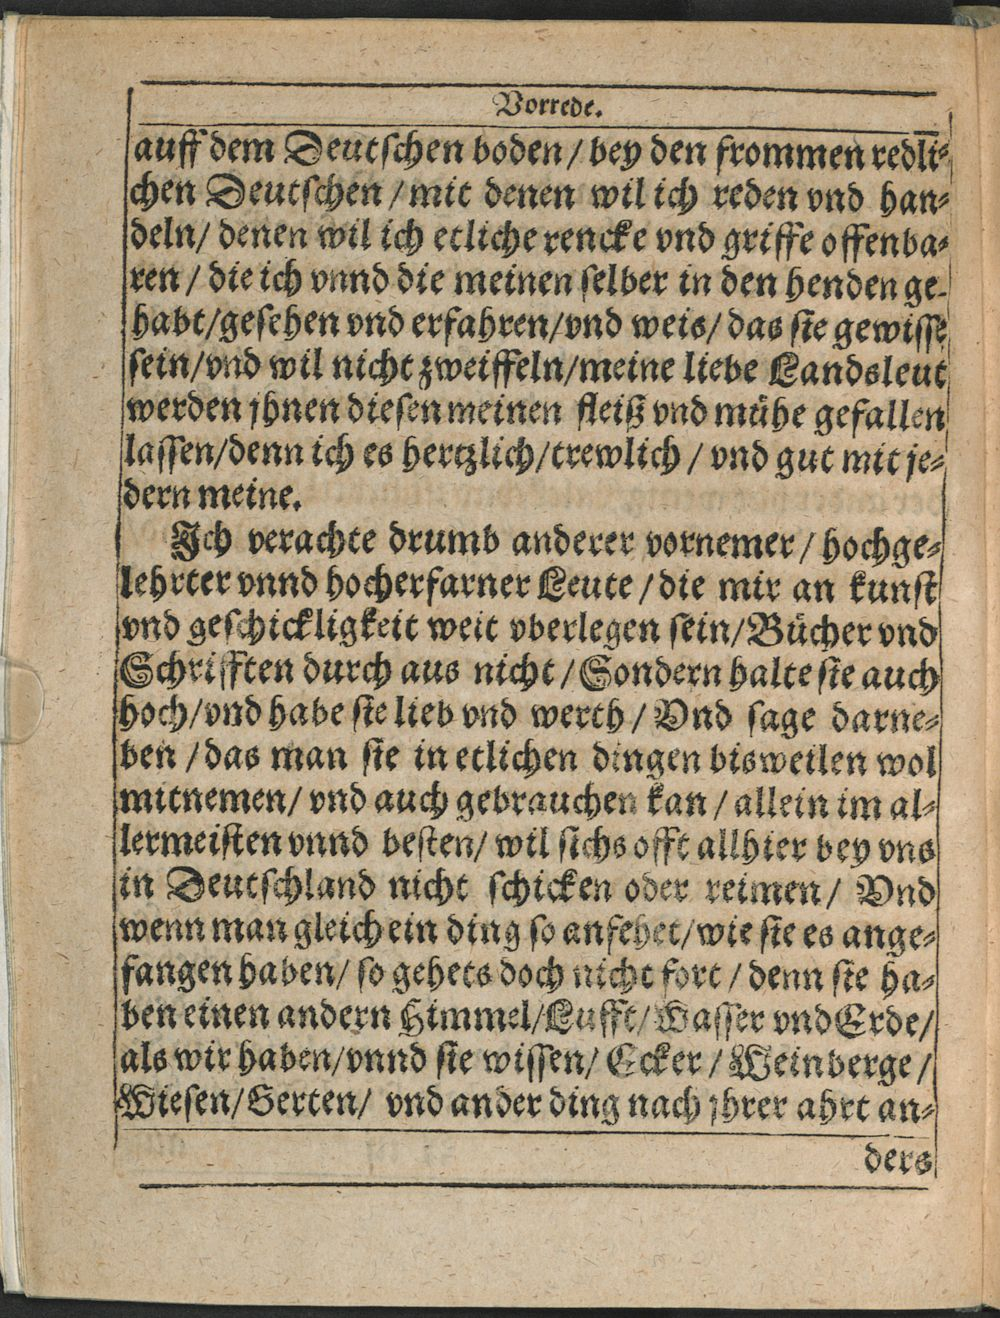 Vorrede.
auff dem Deutschen boden / bey den frommen redli⸗
chen Deutschen / mit denen wil ich reden vnd han⸗
deln/ denen wil ich etliche rencke vnd griffe offenba⸗
ren / die ich vnnd die meinen selber in den henden ge-
habt/gesehen vnd erfahren/vnd weis/ das sie gewisse
sein/vnd wil nicht zweiffeln/meine liebe Landsleut
werden jhnen diesen meinen fleiß vnd mühe gefallen
lassen/denn ich es hertzlich/trewlich / vnd gut mit je⸗
dern meine.
Ich verachte drumb anderer vornemer / hochge⸗
lehrter vnnd hocherfarner Leute / die mir an kunst
vnd geschickligkeit weit vberlegen sein/Bücher vnd
Schrifften durch aus nicht / Sondern halte sie auch
hoch/vnd habe sie lieb vnd werth / Vnd sage darne⸗
ben / das man sie in etlichen dingen bisweilen wol
mitnemen/ vnd auch gebrauchen kan / allein im al⸗
lermeisten vnnd besten/ wil sichs offt allhier bey vns
in Deutschland nicht schicken oder reimen / Vnd
wenn man gleich ein ding so anfehet/wie sie es ange⸗
fangen haben/ so gehets doch nicht fort / denn sie ha⸗
ben einen andern Himmel/Lufft/Wasser vnd Erde/
als wir haben/vnnd sie wissen/ Ecker / Weinberge /
Wiesen/Gerten/ vnd ander ding nach jhrer ahrt an⸗
ders